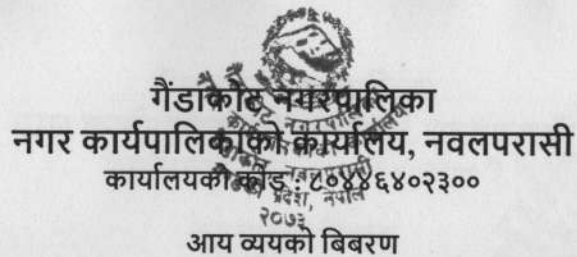 गैंडाकोट नगरपालिका
नगर कार्यपालिकाको कार्यालय, नवलपरासी
कार्यालयको कोड : ८०४४६४०२३००
प्रदेश, नेपाल
२०७३
आय व्ययको बिबरण